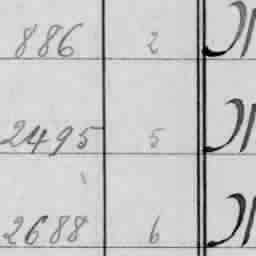 886 2
2495 5
2688 6